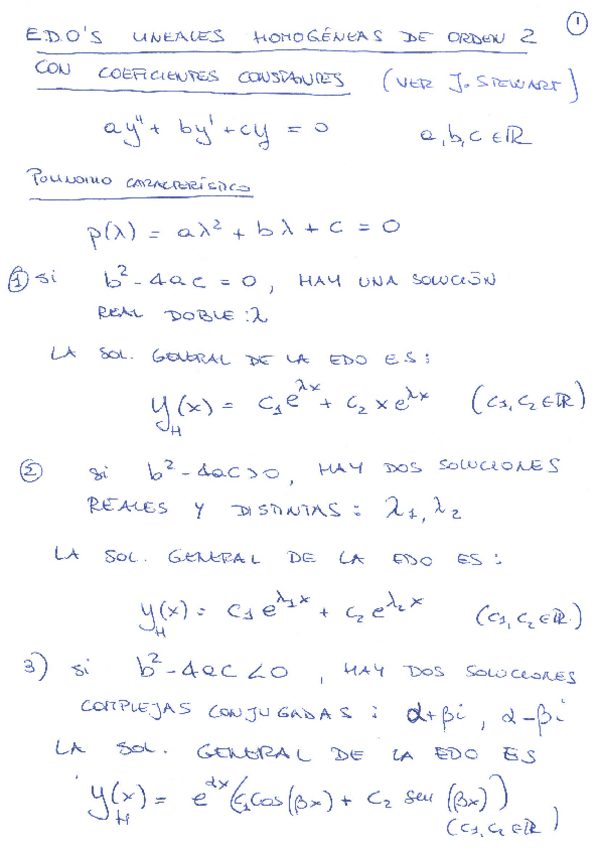 E.D.O'S LINEALES HOMOGÉNEAS DE ORDEN 2 ①
CON COEFICIENTES CONSTANTES (VER J. STEWART)
ay'' + by' + cy = 0 a, b, c ∈ ℝ
POLINOMIO CARACTERÍSTICO
p(λ) = aλ² + bλ + c = 0
① si b² - 4ac = 0, HAY UNA SOLUCIÓN
REAL DOBLE: λ
LA SOL. GENERAL DE LA EDO ES:
y_H(x) = C₁e^{λx} + C₂ x e^{λx} (C₁, C₂ ∈ ℝ)
② si b² - 4ac > 0, HAY DOS SOLUCIONES
REALES Y DISTINTAS: λ₁, λ₂
LA SOL. GENERAL DE LA EDO ES:
y_H(x) = C₁ e^{λ₁x} + C₂ e^{λ₂x} (C₁, C₂ ∈ ℝ)
3) si b² - 4ac < 0, HAY DOS SOLUCIONES
COMPLEJAS CONJUGADAS: α+βi, α-βi
LA SOL. GENERAL DE LA EDO ES
y_H(x) = e^{αx}(C₁cos(βx) + C₂ sen(βx))
(C₁, C₂ ∈ ℝ)